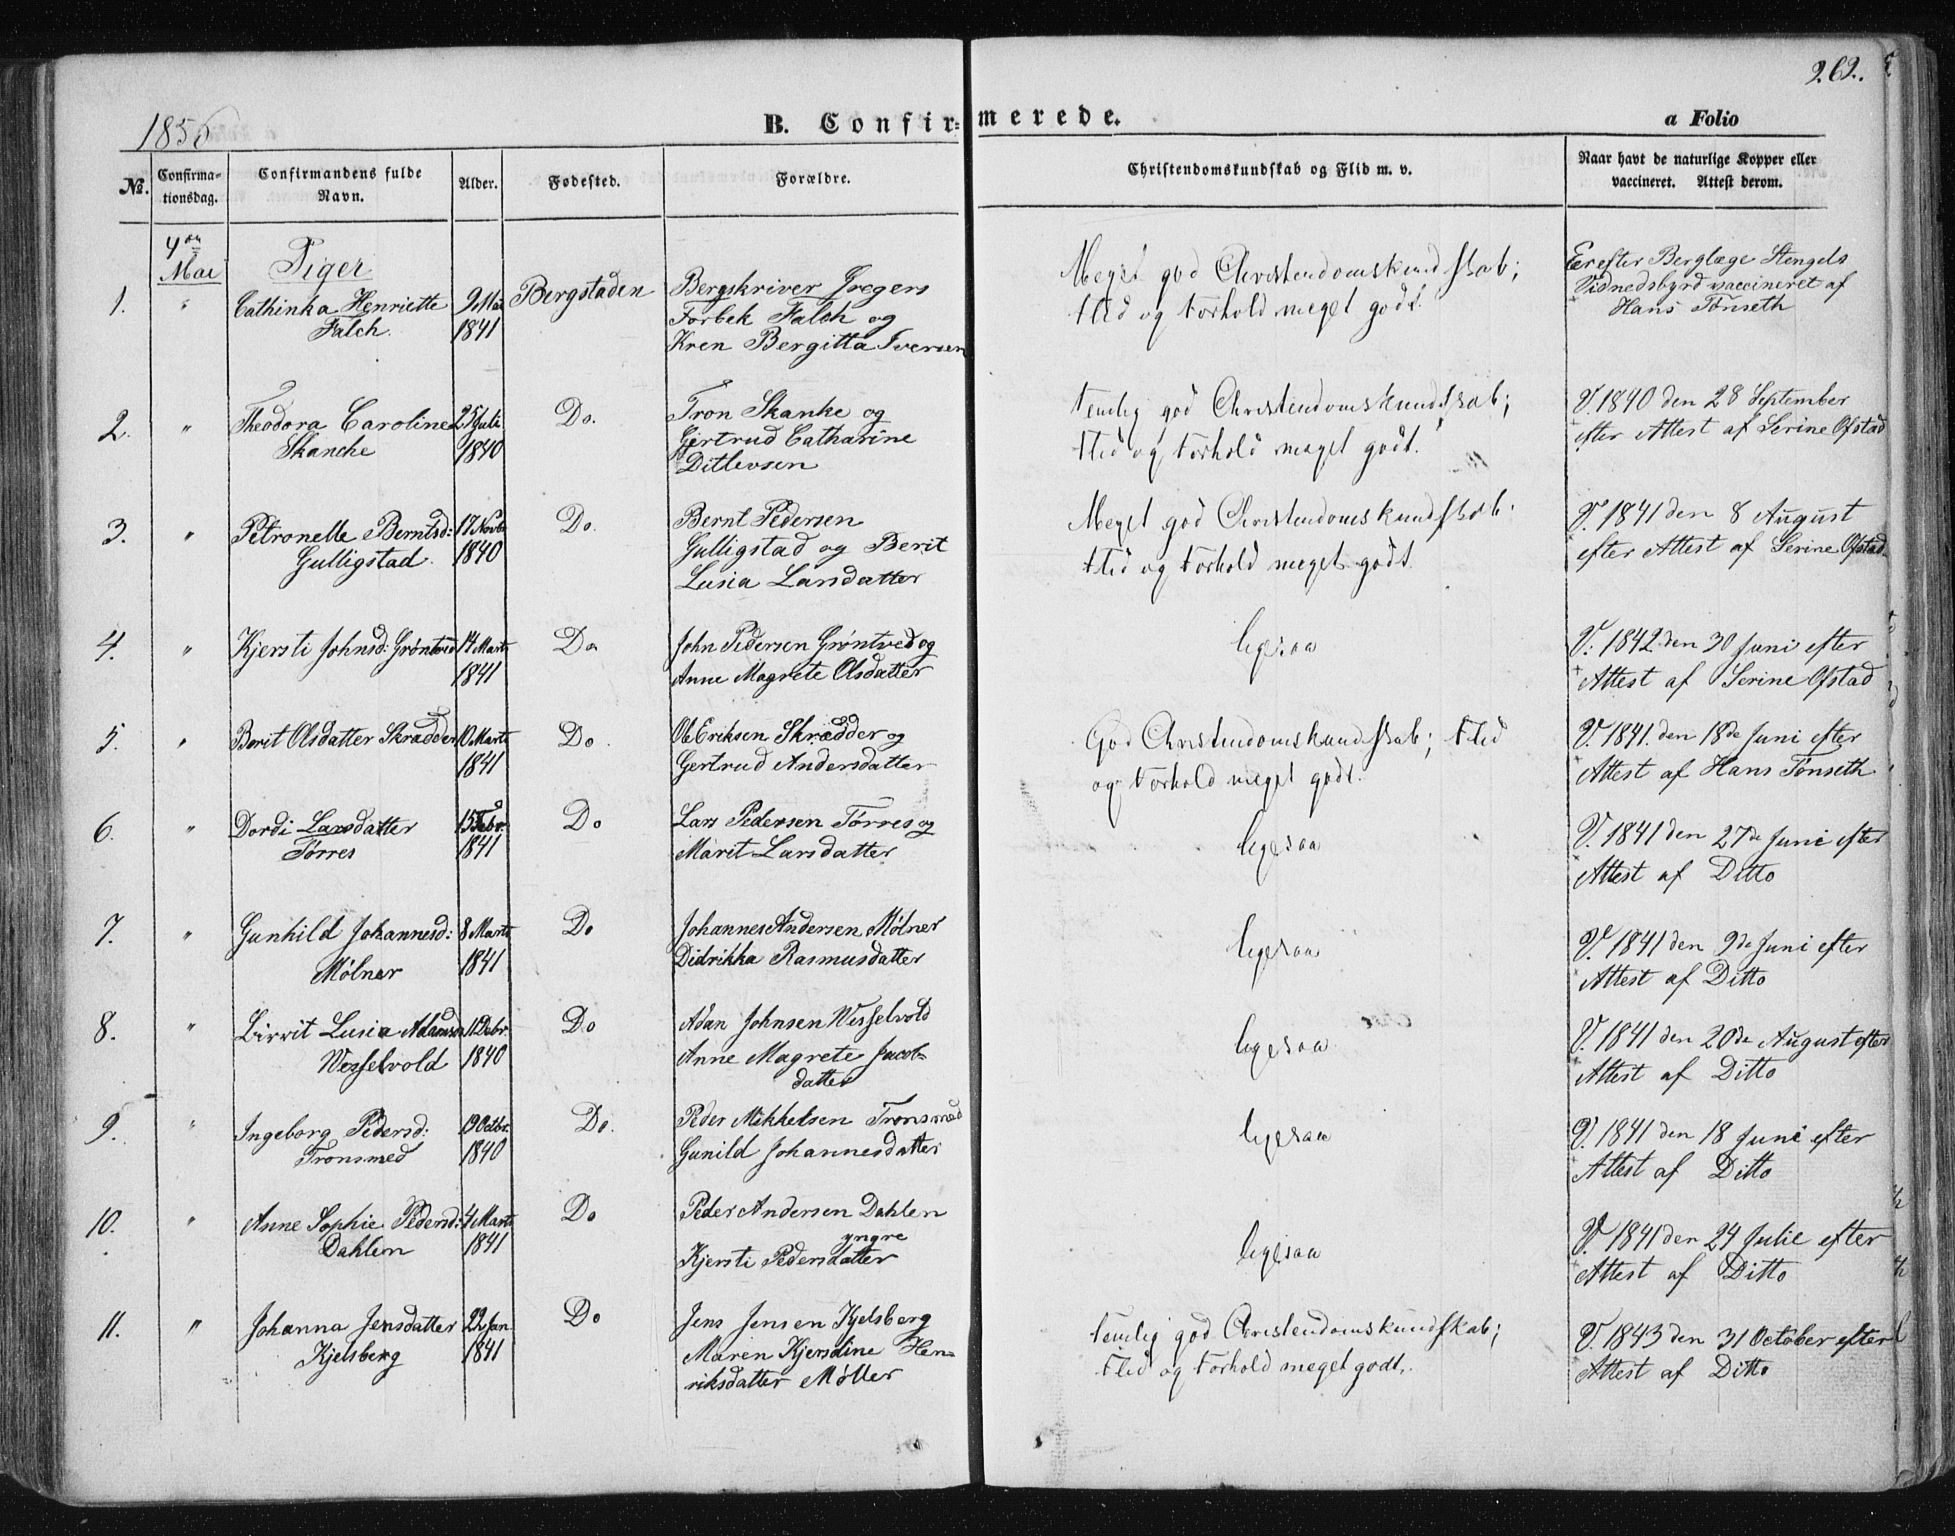 262.
1856
B. Confir=merede.
a Folio
No.
Confirma-
tionsdag.
Confirmandens fulde
Navn.
Alder.
Fødested.
Forældre.
Christendomskundskab og Flid m. v.
Naar havt de naturlige Kopper eller
vaccineret. Attest derom.
4de
Mai
Piger
1. " Cathinka Henriette Falch. 9 Mai 1841 Bergstaden
Bergskriver Jregers
Forbek Falch og
Kren Bergitta Iversen
Meget god Christendomskundskab;
Flid og Forhold meget godt.
Er efter Berglæge Stengels
Vidnedsbyrd vaccineret af
Hans Tønseth
2. " Theodora Caroline Skanche 25 Juli 1840 Do.
Tron Skanke og
Gjertrud Catharine
Ditlevsen
temlig god Christendomskundskab;
Flid og Forhold meget godt.
V. 1840 den 28 September
efter Attest af Serine Ofstad
3. " Petronelle Berntsd: Gulligstad. 17 Novbr 1840 Do.
Bernt Pedersen
Gulligstad og Berit
Lusia Larsdatter
Meget god Christendomskundskab.
Flid og Forhold meget godt.
V. 1841 den 8 August
efter Attest af Serine Ofstad
4. " Kjersti Johnsd: Grøntved 14 Marts 1841 Do
John Pedersen Grøntved og
Anne Magrete Olsdatter
ligesaa
V: 1842 den 30 Juni efter
Attest af Serine Ofstad
5. " Berit Olsdatter Skrædder 10 Marts 1841 Do
Ole Eriksen Skrædder og
Gertrud Andersdatter
God Christendomskundskab; Flid
og Forhold meget godt.
V. 1841. den 18de Juni efter
Attest af Hans Tønseth
6. " Dordi Larsdatter Tørres 15 Febr. 1841 Do
Lars Pedersen Tørres og
Marit Larsdatter
ligesaa
V. 1841 den 27de Juni efter
Attest af Ditto
7. " Gunhild Johannesd: Mølner 8 Marts 1841 Do
Johannes Andersen Mølner
Didrikka Rasmusdatter
ligesaa
V. 1841 den 9de Juni efter
Attest af Ditto
8. " Birrit Lusia Adamsd Wesselvold 11 Debr. 1840 Do
Adan Johnsen Wesselvold
Anne Magrete Jacob-
datter
ligesaa
V. 1841 den 20de August efter
Attest af Ditto
9. " Ingeborg Pedersd: Tronsmed 19 Octbr. 1840 Do.
Peder Mikkelsen Tronsmed
Gunild Johannesdatter
ligesaa
V. 1841 den 18 Juni efter
Attest af Ditto
10. " Anne Sophie Pedersd: Dahlen 4 Marts 1841 Do
Peder Andersen Dahlen
yngre
Kjersti Pedersdatter
ligesaa
V. 1841 den 24 Julie efter
Attest af Ditto
11. " Johanna Jensdatter Kjelsberg 22 Jan 1841 Do
Jens Jensen Kjelsberg
Maren Kjersdine Hen-
riksdatter Møller
temlig god Christendomskundskab;
Flid og Forhold meget godt.
V. 1843 den 31 October efter
Attest af Ditto